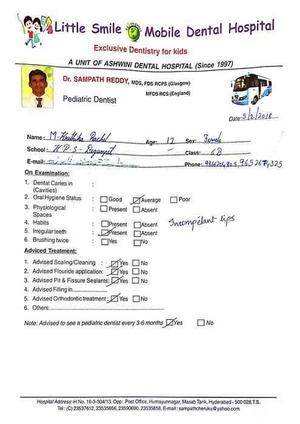 Little Smile Mobile Dental Hospital
Exclusive Dentistry for kids
A UNIT OF ASHWINI DENTAL HOSPITAL (Since 1997)
Dr. SAMPATH REDDY, MDS, FDS RCPS (Glasgow)
MFDS RCS (England)
Pediatric Dentist
Date: 3/2/2018
Name: M. Age: 12 Sex: Female
School: H.P.S - Class: 6B
E-mail: Phone:
On Examination:
1. Dental Caries in (Cavities) :
2. Oral Hygiene Status : Good Average Poor
3. Physiological Spaces : Present Absent
4. Habits : Present Absent Incompetant lips
5. Irregular teeth : Present Absent
6. Brushing twice : Yes No
Adviced Treatment:
1. Advised Scaling/Cleaning : Yes No
2. Advised Flouride application: Yes No
3. Advised Pit & Fissure Sealants: Yes No
4. Advised Filling in
5. Advised Orthodontic treatment : Yes No
6. Others:
Note: Advised to see a pediatric dentist every 3-6 months Yes No
Hospital Address: H.No. 10-3-304/13, Opp: Post Office, Humayunnagar, Masab Tank, Hyderabad - 500 028.T.S.
Tel: (C) 23537612, 23535656, 23590690, 23535858, E-mail: sampathcheruku@yahoo.com